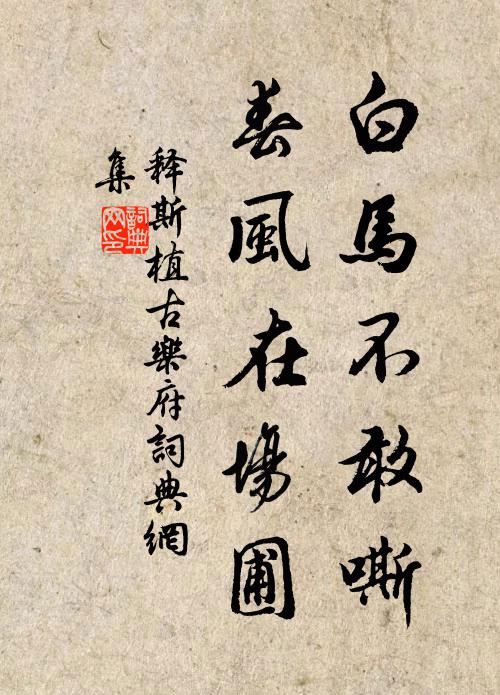 白馬不敢嘶
春風在場圃
释斯植古樂府詞典網
集
詞典网印